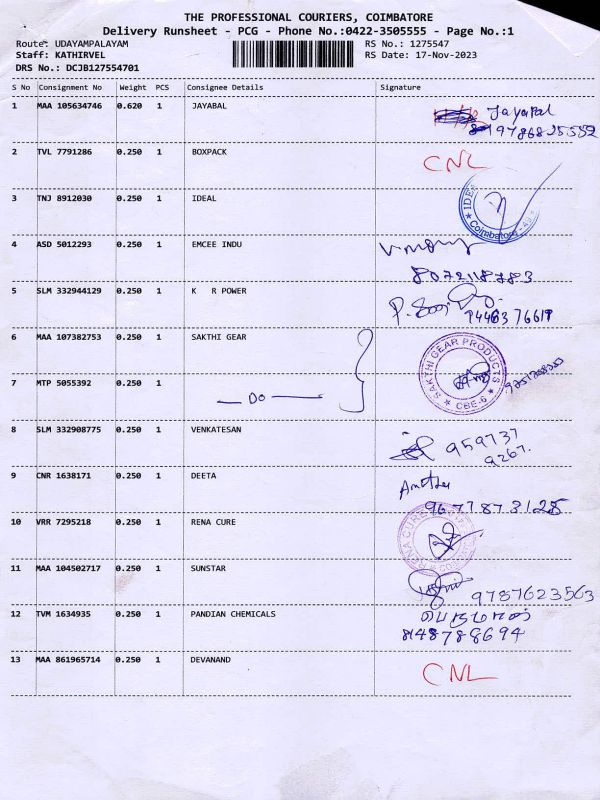 THE PROFESSIONAL COURIERS, COIMBATORE
Delivery Runsheet - PCG - Phone No.:0422-3505555 - Page No.:1
Route: UDAYAMPALAYAM RS No.: 1275547
Staff: KATHIRVEL RS Date: 17-Nov-2023
DRS No.: DCJB127554701
S No Consignment No Weight PCS Consignee Details Signature
1 MAA 105634746 0.620 1 JAYABAL Jayapal
9786825552
2 TVL 7791286 0.250 1 BOXPACK CNL
3 TNJ 8912030 0.250 1 IDEAL
Coimbatore
4 ASD 5012293 0.250 1 EMCEE INDU
8072118783
5 SLM 332944129 0.250 1 K R POWER
6 MAA 107382753 0.250 1 SAKTHI GEAR SAKTHI GEAR PRODUCTS
CBE-6
7 MTP 5055392 0.250 1 — DO —
8 SLM 332908775 0.250 1 VENKATESAN 959737
9267.
9 CNR 1638171 0.250 1 DEETA
9677873128
10 VRR 7295218 0.250 1 RENA CURE RENA CURE
11 MAA 104502717 0.250 1 SUNSTAR 9787623563
12 TVM 1634935 0.250 1 PANDIAN CHEMICALS பெருமாள்
8148788694
13 MAA 861965714 0.250 1 DEVANAND CNL